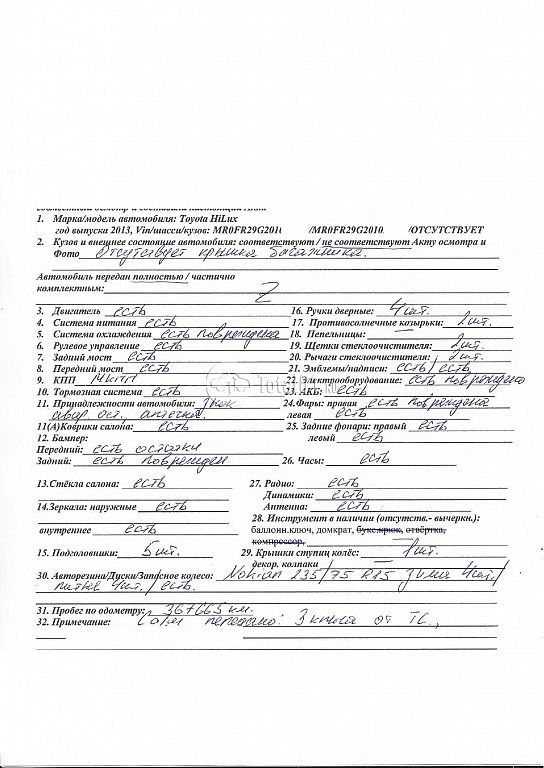 1. Марка/модель автомобиля: Toyota HiLux
год выпуска 2013, Vin/шасси/кузов: MR0FR29G201 /MR0FR29G2010 /ОТСУТСТВУЕТ
2. Кузов и внешнее состояние автомобиля: соответствуют / не соответствуют Акту осмотра и
Фото отсутствует крышка багажника.
Автомобиль передан полностью / частично
комплектным: Z
3. Двигатель есть 16. Ручки дверные: 4 шт.
4. Система питания есть 17. Противосолнечные козырьки: 2 шт.
5. Система охлаждения есть повреждена 18. Пепельницы: —
6. Рулевое управление есть 19. Щетки стеклоочистителя: 2 шт.
7. Задний мост есть 20. Рычаги стеклоочистителя: 2 шт.
8. Передний мост есть 21. Эмблемы/надписи: есть / есть
9. КПП МКПП 22. Электрооборудование: есть повреждено
10. Тормозная система есть 23. АКБ: есть
11. Принадлежности автомобиля: 24.Фары: правая есть повреждена
авар. ост. аптечка. левая есть
11(А)Коврики салона: есть 25. Задние фонари: правый есть
12. Бампер: левый есть
Передний: есть остатки
Задний: есть поврежден 26. Часы: есть
13.Стёкла салона: есть 27. Радио: есть
Динамики: есть
14.Зеркала: наружные есть Антенна: есть
28. Инструмент в наличии (отсутств.- вычеркн.):
внутреннее есть баллонн.ключ, домкрат, букс.крюк, отвёртка,
компрессор,
15. Подголовники: 5 шт. 29. Крышки ступиц колёс: 1 шт.
декор. колпаки —
30. Авторезина/Диски/Запасное колесо: Nokian 235/75 R15 зима 4 шт/
литые 4 шт. / есть.
31. Пробег по одометру: 367665 км.
32. Примечание: С а/м передано: 3 ключа от ТС,